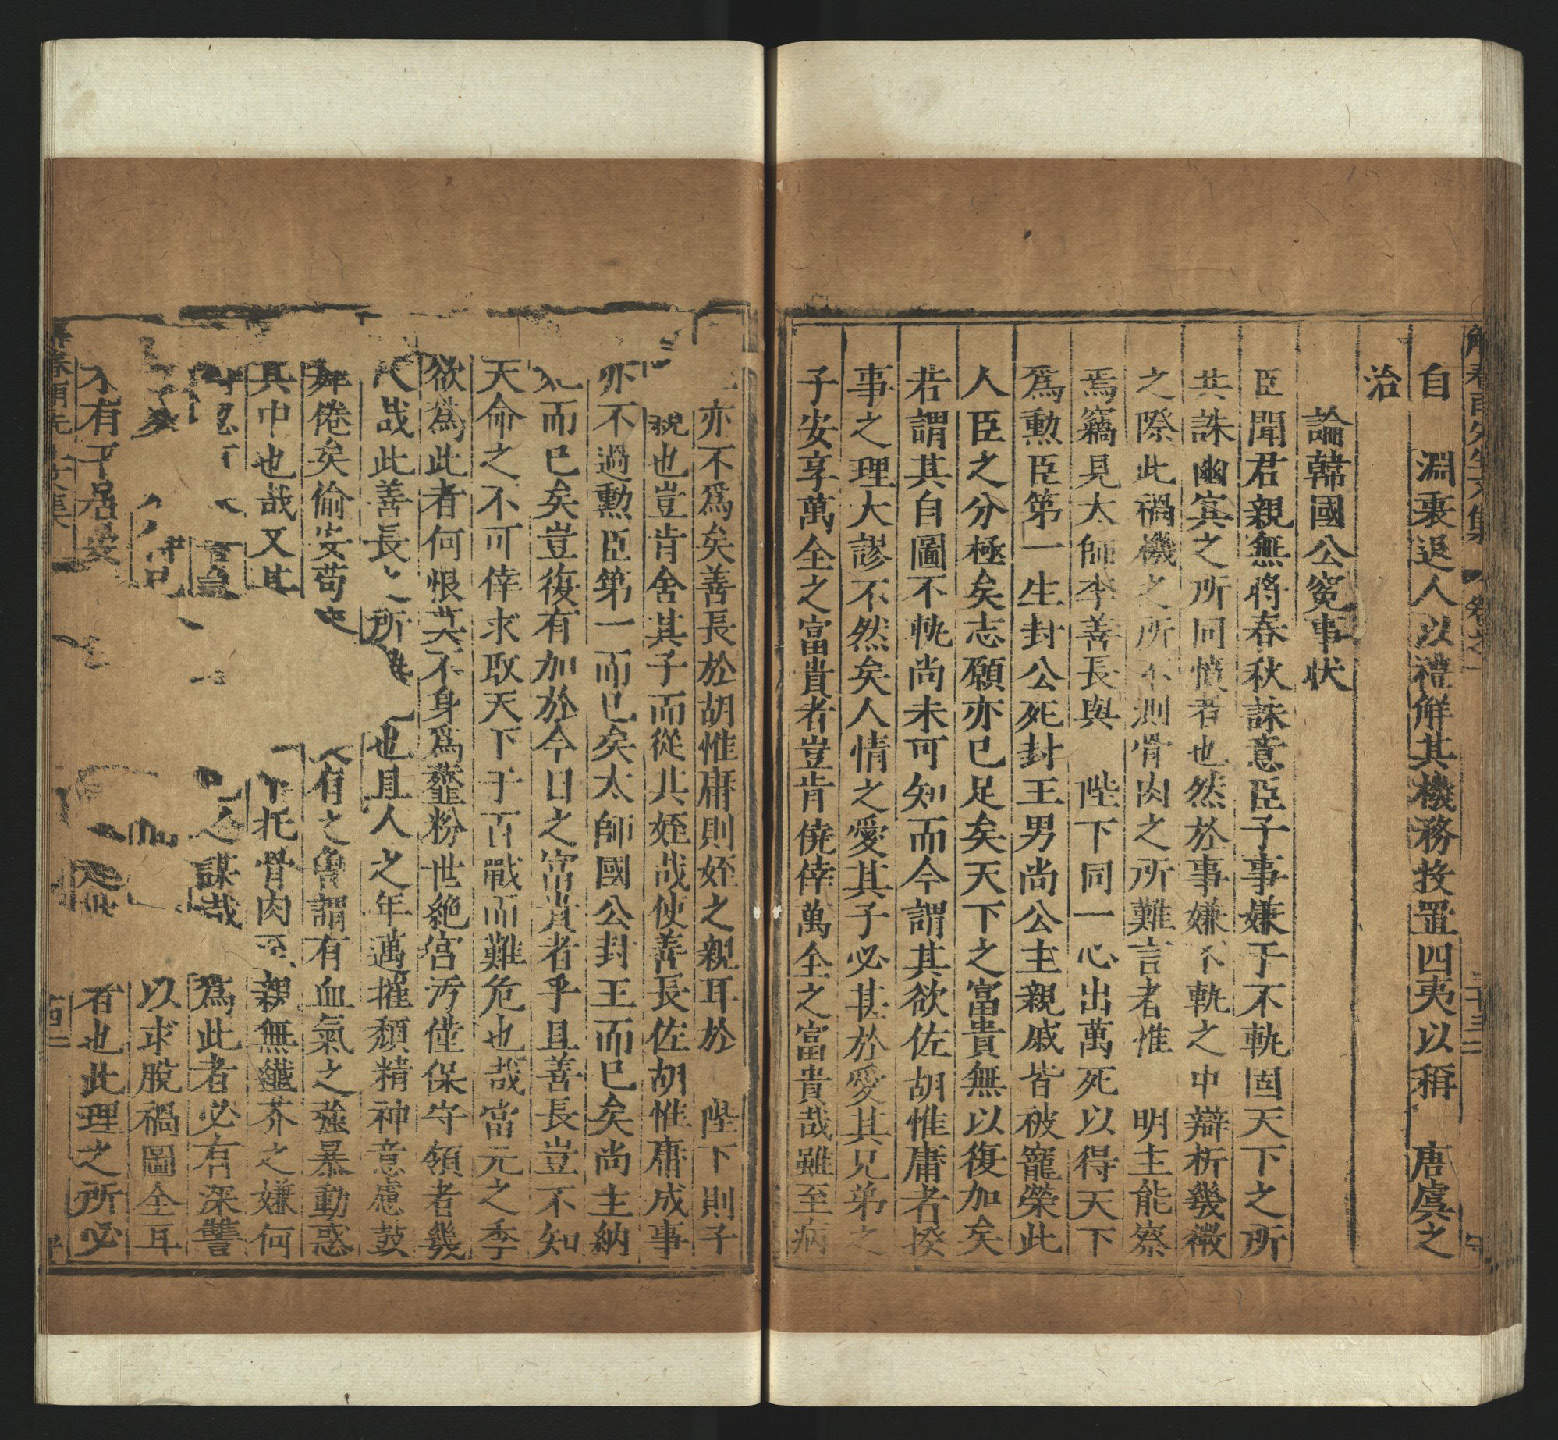 解春雨先生文集 卷之一
自 淵衷退人以禮解其機務投置四夷以稱 唐虞之
治
論韓國公冤事狀
臣聞君親無將春秋誅意臣子事嫌于不軌固天下之所
共誅幽冥之所同憤者也然於事嫌不軌之中辯析幾微
之際此禍機之所不測骨肉之所難言者惟 明主能察
焉竊見太師李善長與 陛下同一心出萬死以得天下
為勲臣第一生封公死封王男尚公主親戚皆被寵榮此
人臣之分極矣志願亦已足矣天下之富貴無以復加矣
若謂其自圖不軌尚未可知而今謂其欲佐胡惟庸者揆
事之理大謬不然矣人情之愛其子必甚於愛其兄弟之
子安享萬全之富貴者豈肯僥倖萬全之富貴哉雖至病
亦不為矣善長於胡惟庸則姪之親耳於 陛下則子
親也豈肯舍其子而從其姪哉使善長佐胡惟庸成事
亦不過勲臣第一而已矣太師國公封王而已矣尚主納
而已矣豈復有加於今日之富貴者乎且善長豈不知
天命之不可倖求取天下于百戰而難危也哉當元之季
欲為此者何恨莫不身為虀粉世絶宮汚僅保守領者幾
人哉此善長之所 也且人之年邁摧頽精神意慮鼓
舞倦矣偷安苟 有之 謂有血氣之強暴動惑
其中也哉又其 托骨肉至親無纎芥之嫌何
之謀哉 為此者必有深讐
以求脫禍圖全耳
未有平居晏 者也此理之所必